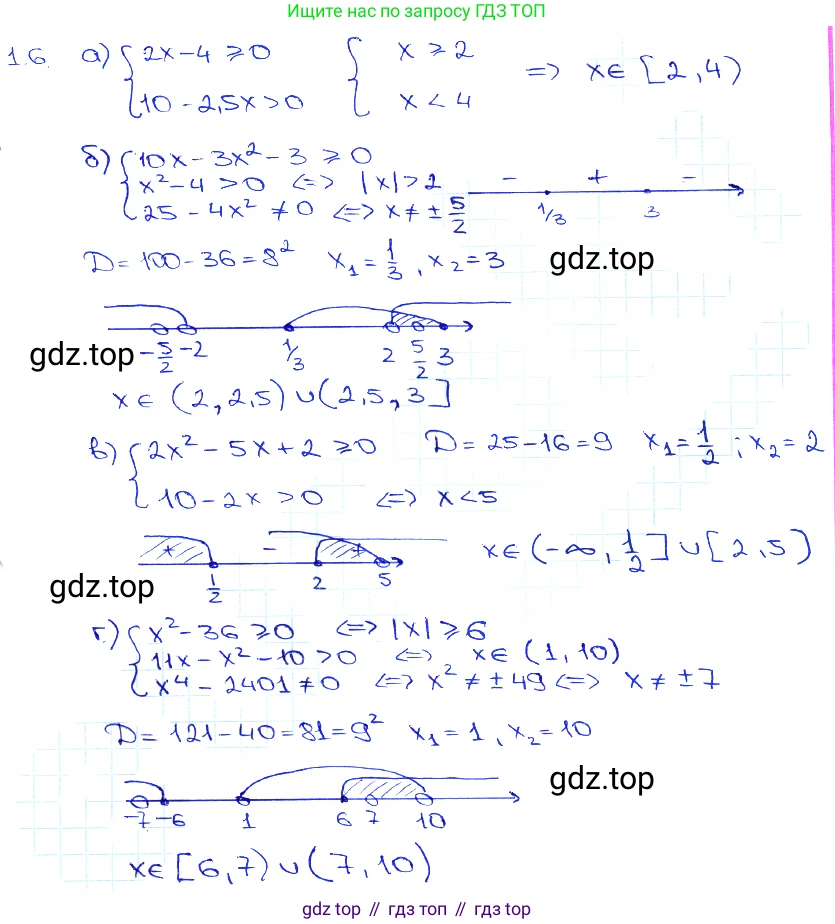 Ищите нас по запросу ГДЗ ТОП
1.6. а) { 2x-4 ≥ 0 { x ≥ 2 => x∈ [2,4)
10-2,5x>0 x < 4
б) { 10x-3x²-3 ≥ 0
x²-4 >0 <=> |x|>2 - + -
25-4x² ≠0 <=> x≠±5/2 1/3 3
D=100-36=8² x₁=1/3, x₂=3 gdz.top
gdz.top -5/2 -2 1/3 2 5/2 3
x∈ (2, 2,5)∪(2,5, 3]
в) { 2x²-5x+2 ≥0 D=25-16=9 x₁=1/2; x₂=2
10-2x >0 <=> x<5
+ - + x∈(-∞, 1/2]∪[2,5)
gdz.top 1/2 2 5
г.) { x²-36≥0 <=> |x|≥6
11x-x²-10>0 <=> x∈ (1,10)
x⁴-2401≠0 <=> x²≠±49 <=> x≠±7
D=121-40=81=9² x₁=1, x₂=10
gdz.top
-7 -6 1 6 7 10
x∈ [6,7)∪(7,10)
gdz top // гдз топ // gdz.top